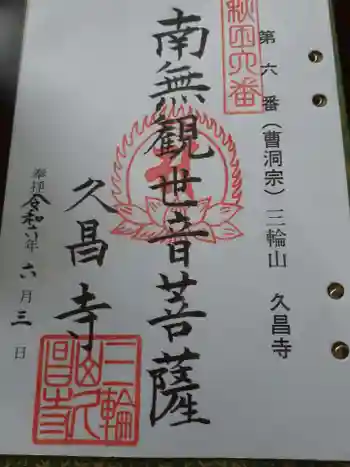 第六番(曹洞宗)三輪山 久昌寺
秩父六番
南無観世音菩薩
久昌寺
奉拝 令和六年六月三日
三輪
山久
昌寺